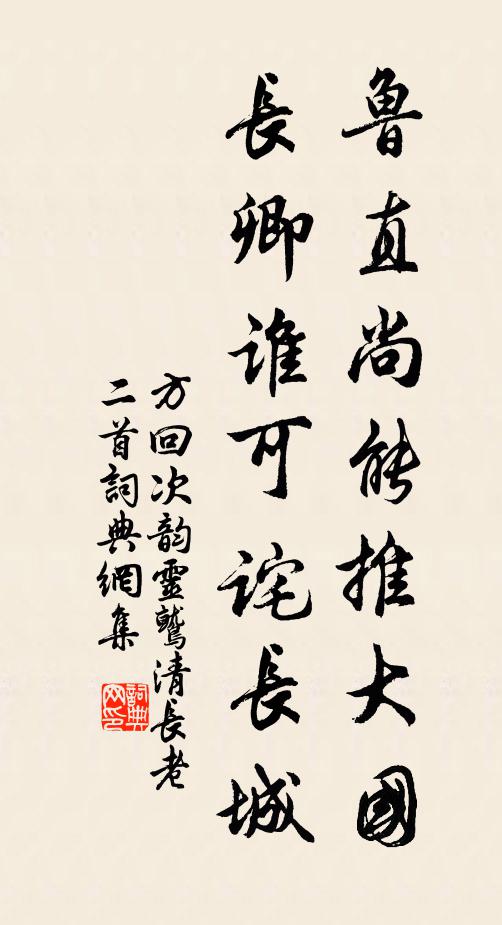 魯直尚能推大國
長卿誰可詫長城
方回次韵靈鷲清長老
二首詞典網集
詞典网印